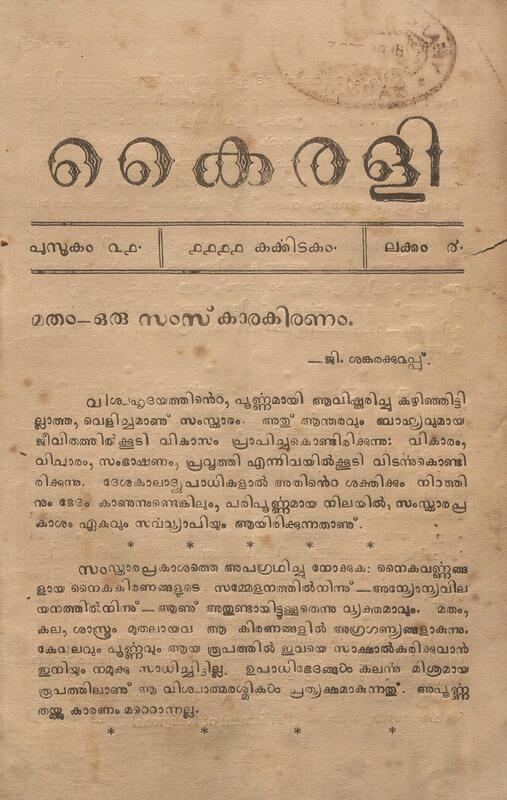 കൈരളി
പുസ്തകം ൨൧. ൧൧൧൧ കർക്കിടകം. ലക്കം ൪.
മതം—ഒരു സംസ്കാരകിരണം.
—ജി. ശങ്കരക്കുറുപ്പ്.
വിശ്വഹൃദയത്തിൻെറ, പൂർണ്ണമായി ആവിഷ്കരിച്ചു കഴിഞ്ഞിട്ടി
ല്ലാത്ത, വെളിച്ചമാണ് സംസ്കാരം. അതു് ആന്തരവും ബാഹ്യവുമായ
ജീവിതത്തിൽക്കൂടി വികാസം പ്രാപിച്ചുകൊണ്ടിരിക്കുന്നു: വികാരം,
വിചാരം, സംഭാഷണം, പ്രവൃത്തി എന്നിവയിൽക്കൂടി വിടർന്നുകൊണ്ടി
രിക്കുന്നു. ദേശകാലാദ്യുപാധികളാൽ അതിൻെറ ശക്തിക്കും നിറത്തി
നും ഭേദം കാണുന്നുണ്ടെങ്കിലും, പരിപൂർണ്ണമായ നിലയിൽ, സംസ്കാരപ്ര
കാശം ഏകവും സർവ്വവ്യാപിയും ആയിരിക്കുന്നതാണ്.
* * * *
സംസ്കാരപ്രകാശത്തെ അപഗ്രഥിച്ചു നോക്കുക: നൈകവർണ്ണങ്ങ
ളായ നൈകകിരണങ്ങളുടെ സമ്മേളനത്തിൽനിന്നു്—അന്യോന്യവില
യനത്തിൽനിന്നു്—ആണ് അതുണ്ടായിട്ടുള്ളതെന്നു വ്യക്തമാവും. മതം,
കല, ശാസ്ത്രം മുതലായവ ആ കിരണങ്ങളിൽ അഗ്രഗണ്യങ്ങളാകുന്നു.
കേവലവും പൂർണ്ണവും ആയ രൂപത്തിൽ ഇവയെ സാക്ഷാൽകരിക്കുവാൻ
ഇനിയും നമുക്കു സാധിച്ചിട്ടില്ല. ഉപാധിഭേദങ്ങൾ കലർന്നു മിശ്രമായ
രൂപത്തിലാണ് ആ വിശ്വാത്മരശ്മികൾ പ്രത്യക്ഷമാകുന്നത്. അപൂർണ്ണ
തയ്ക്കു കാരണം മറ്റൊന്നല്ല.
* * * *